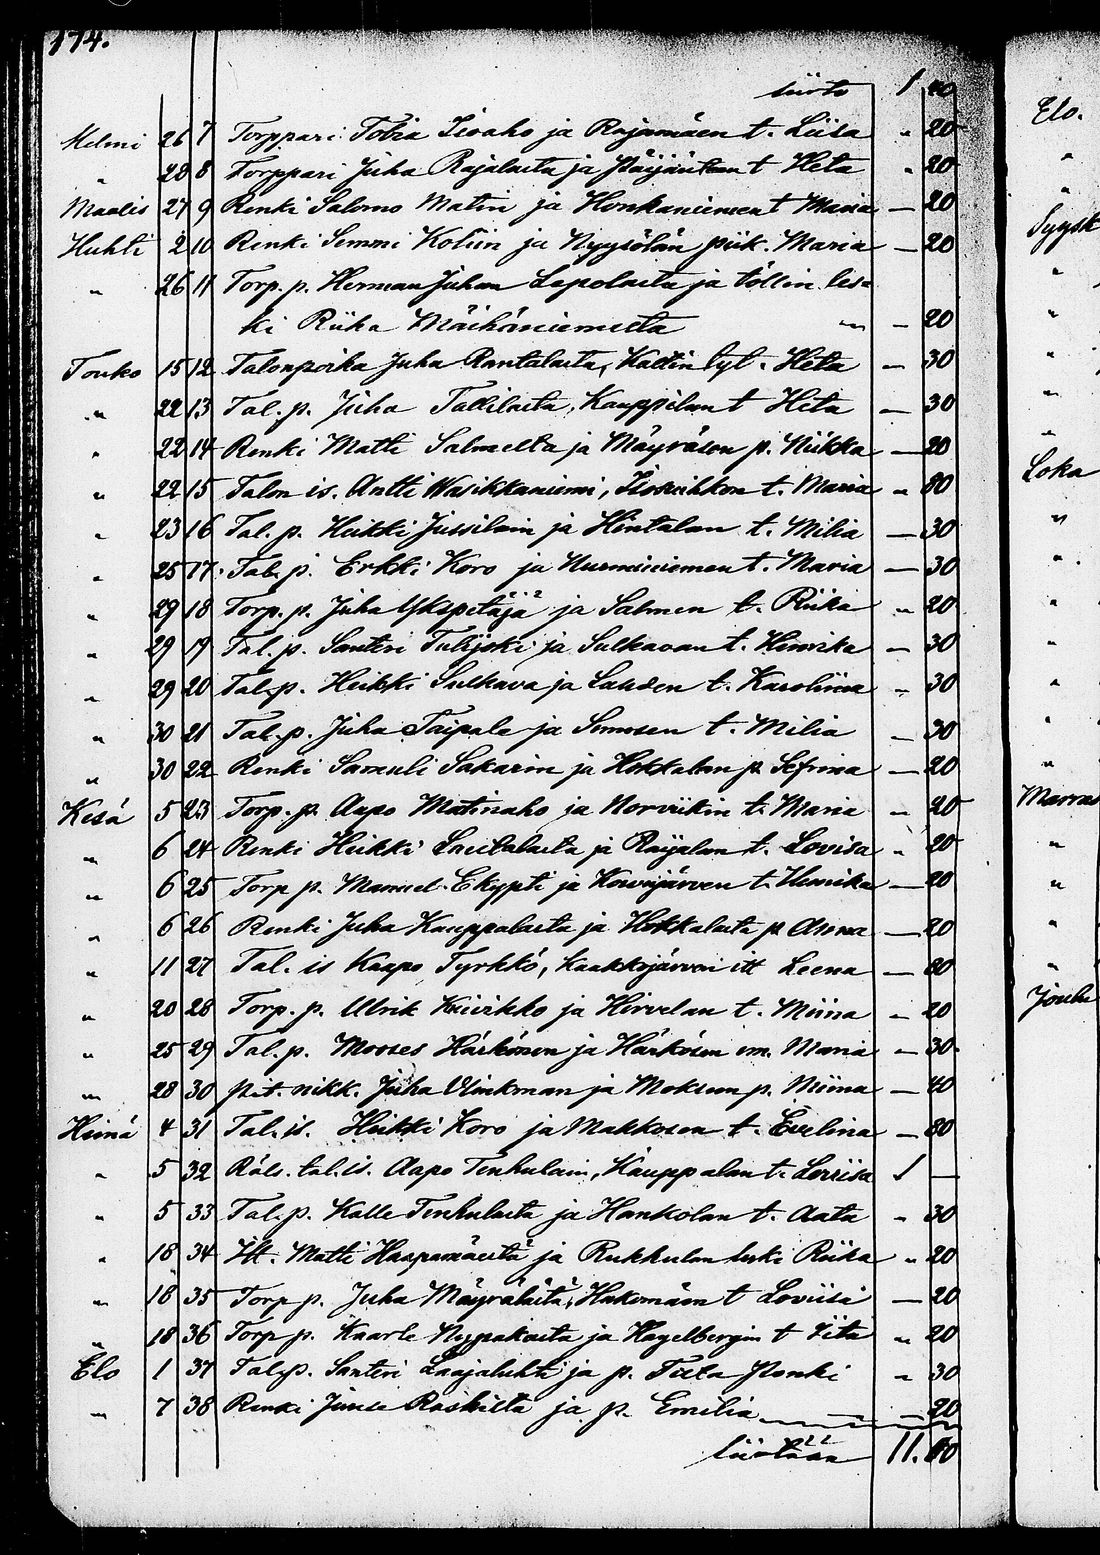 174.
siirto 1 40
Helmi 26 7 Torppari Tobia Isoaho ja Rajamäen t. Liisa " 20
" 28 8 Torppari Juha Rajalasta ja t Heta " 20
Maalis 27 9 Renki Salomo Matin ja Honkaniemen t Maria — 20
Huhti 2 10 Renki Semmi Kotiin ja Nyysölän piik. Maria — 20
" 26 11 Torp. p. Herman Juhan Lapolasta ja töllin les
ki Riika Mäihäniemestä " — 20
Touko 15 12 Talonpoika Juha Rantalasta, Kattin tyt. Heta — 30
" 22 13 Tal. p. Juha Tallilasta, Kauppilan t Heta — 30
" 22 14 Renki Matti Salmelta ja Mäyräsen p. Riikka — 20
" 22 15 Talon is. Antti Wasikkaniemi, t. Maria " 80
" 23 16 Tal. p. Heikki Jussilain ja Hintalan t. Milia — 30
" 25 17 Tal. p. Erkki Koro ja Nurminiemen t. Maria — 30
" 29 18 Torp. p. Juha Ykspetäjä ja Salmen t. Riika " 20
" 29 19 Tal. p. Santeri ja Sulkavan t. Henrika — 30
" 29 20 Tal. p. Heikki Sulkava ja t. Karoliina " 30
" 30 21 Tal. p. Juha Taipale ja t. Milia — 30
" 30 22 Renki Samuli Sakarin ja Hokkalan p. Sefrina — 20
Kesä 5 23 Torp. p. Aapo Matinaho ja t. Maria " 20
" 6 24 Renki Heikki ja t. Lovisa " 20
" 6 25 Torp p. Manuel Ekypti ja t. — 20
" 6 26 Renki Juha Kauppalasta ja Hokkalasta p. Anna — 20
" 11 27 Tal. is Kaapo Tyrkkö, Kaakkojärven itt Leena — 80
" 20 28 Torp. p. Ulrik ja Hirvelan t. Miina " 20
" 25 29 Tal. p. Mooses Härkönen ja Härkösen em. Maria — 30
" 28 30 pit. nikk. Juha ja p. Miina — 40
Heinä 4 31 Tal. is. Heikki Koro ja Makkosen t. Evelina — 80
" 5 32 Räls. tal. is. Aapo Tenhulain, Kauppalan t. Loviisa 1 —
" 5 33 Tal. p. Kalle Tenhulasta ja Hankolan t. Aata " 30
" 18 34 Itt. Matti Haapamäestä ja Rukkulan leski Riika " 20
" 18 35 Torp p. Juha Mäyrälästä, Hakomäen t Loviisi — 20
" 18 36 Torp p. Kaarle Nypakasta ja Hagelbergin t Iita " 20
Elo 1 37 Tal. p. Santeri Laajalahti ja p. Ronki " 30
" 7 38 Renki ja p. Emilia — 20
siirtään 11. 60
Elo.
"
"
Syysk
"
"
"
"
"
Loka
"
"
"
"
"
"
"
Marras
"
"
"
"
Joulu